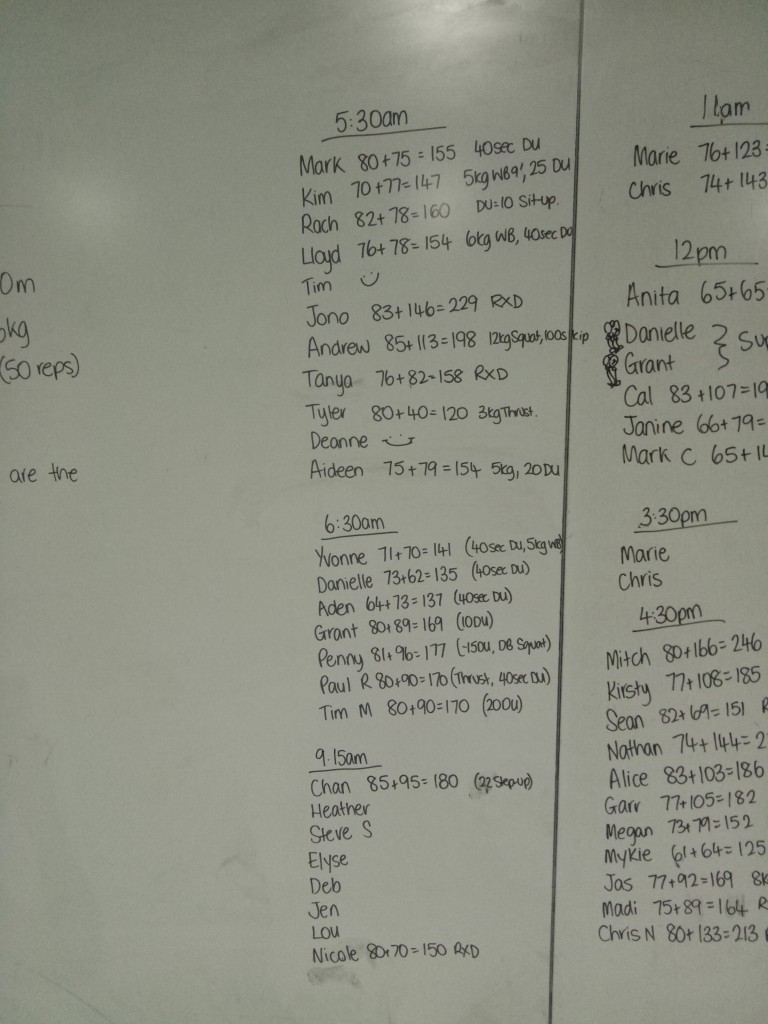 0m
kg
(50 reps)
are the
5:30am
Mark 80+75=155 40sec DU
Kim 70+77=147 5kg WB9', 25 DU
Rach 82+78=160 DU=10 Sit-up.
Lloyd 76+78=154 6kg WB, 40sec DU
Tim
Jono 83+146=229 RXD
Andrew 85+113=198 12kg Squat, 100skip
Tanya 76+82=158 RXD
Tyler 80+40=120 3kg Thrust.
Deanne
Aideen 75+79=154 5kg, 20 DU
6:30am
Yvonne 71+70=141 (40sec DU, 5kg WB)
Danielle 73+62=135 (40sec DU)
Aden 64+73=137 (40sec DU)
Grant 80+89=169 (10DU)
Penny 81+96=177 (-15DU, DB Squat)
Paul R 80+90=170 (Thrust, 40sec DU)
Tim M 80+90=170 (20DU)
9:15am
Chan 85+95=180 (22 Step-up)
Heather
Steve S
Elyse
Deb
Jen
Lou
Nicole 80+70=150 RXD
11am
Marie 76+123=
Chris 74+143
12pm
Anita 65+65
Danielle } Su
Grant
Cal 83+107=19
Janine 66+79=
Mark C 65+14
3:30pm
Marie
Chris
4:30pm
Mitch 80+166=246
Kirsty 77+108=185
Sean 82+69=151 R
Nathan 74+144=2
Alice 83+103=186
Garr 77+105=182
Megan 73+79=152
Mykie 61+64=125
Jas 77+92=169 8k
Madi 75+89=164 R
Chris N 80+133=213